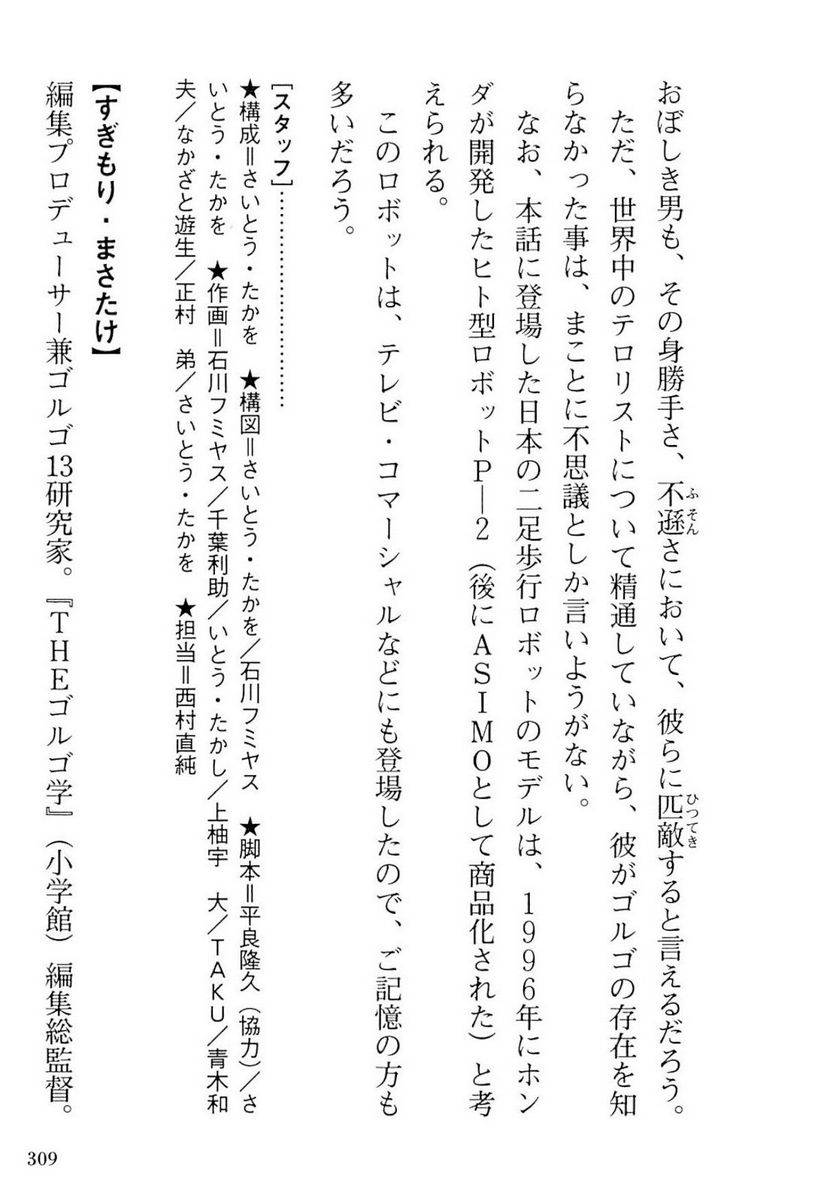 おぼしき男も、その身勝手さ、不遜さにおいて、彼らに匹敵すると言えるだろう。
ふそん
ひつてき
ただ、世界中のテロリストについて精通していながら、彼がゴルゴの存在を知
らなかった事は、まことに不思議としか言いようがない。
なお、本話に登場した日本の二足歩行ロボットのモデルは、1996年にホン
ダが開発したヒト型ロボットP―2（後にASIMOとして商品化された）と考
えられる。
このロボットは、テレビ・コマーシャルなどにも登場したので、ご記憶の方も
多いだろう。
［スタッフ］…………………………
★構成＝さいとう・たかを ★構図＝さいとう・たかを／石川フミヤス ★脚本＝平良隆久（協力）／さ
いとう・たかを ★作画＝石川フミヤス／千葉利助／いとう・たかし／上柚宇 大／TAKU／青木和
夫／なかざと遊生／正村 弟／さいとう・たかを ★担当＝西村直純
【すぎもり・まさたけ】
編集プロデューサー兼ゴルゴ13研究家。『THEゴルゴ学』（小学館）編集総監督。
309